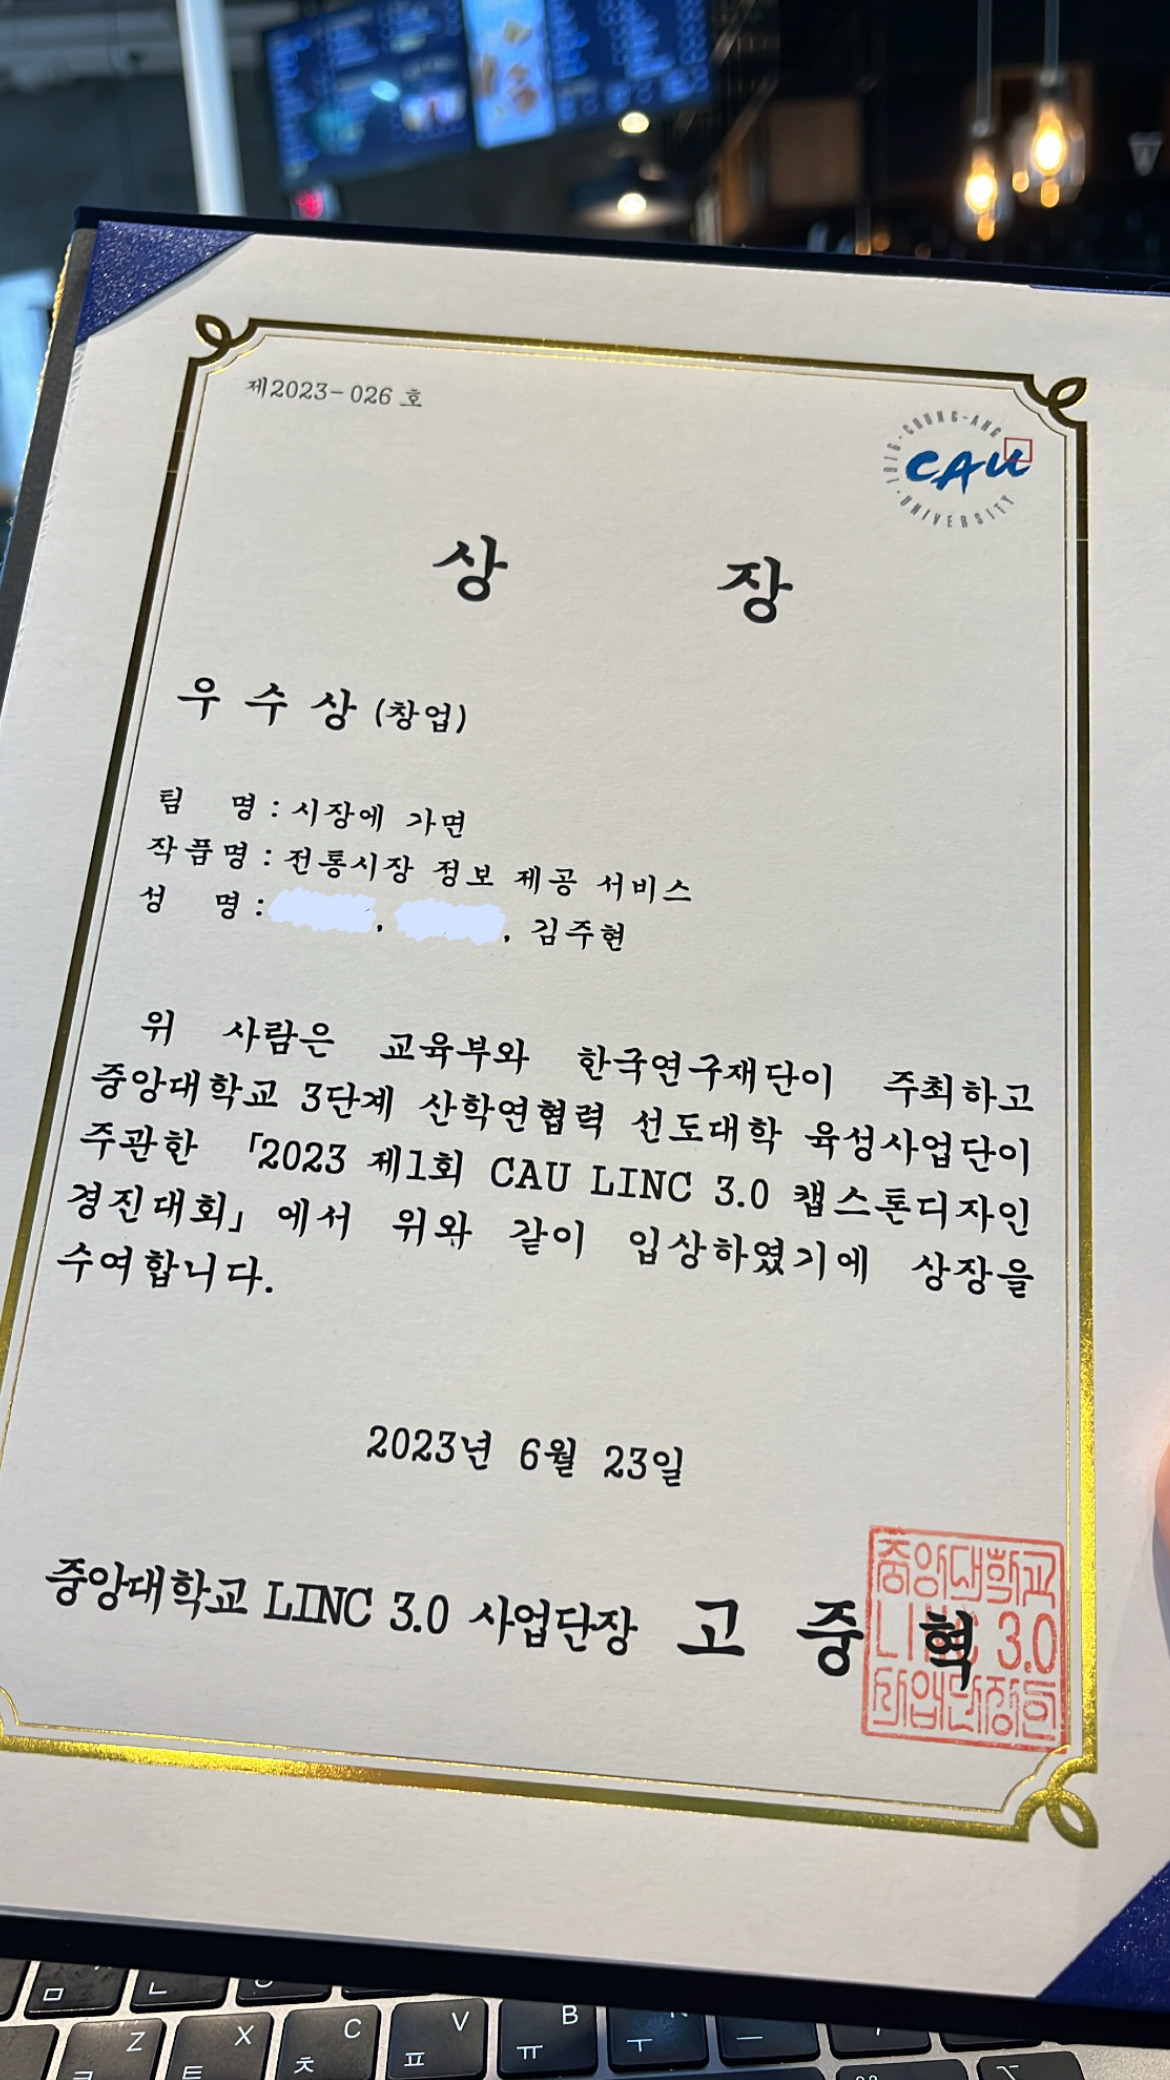 제2023-026 호
1916·CHUNG-ANG
CAU
UNIVERSITY
상 장
우 수 상 (창업)
팀 명 : 시장에 가면
작품명 : 전통시장 정보 제공 서비스
성 명 : , , 김주현
위 사람은 교육부와 한국연구재단이 주최하고
중앙대학교 3단계 산학연협력 선도대학 육성사업단이
주관한 「2023 제1회 CAU LINC 3.0 캡스톤디자인
경진대회」에서 위와 같이 입상하였기에 상장을
수여합니다.
2023년 6월 23일
중앙대학교 LINC 3.0 사업단장 고 중 혁
중앙대학교
LINC 3.0
사업단장인
ㅁ
ㄴ
Z ㅋ
X ㅌ
C ㅊ
V ㅍ
B ㅠ
N ㅜ
ㅡ